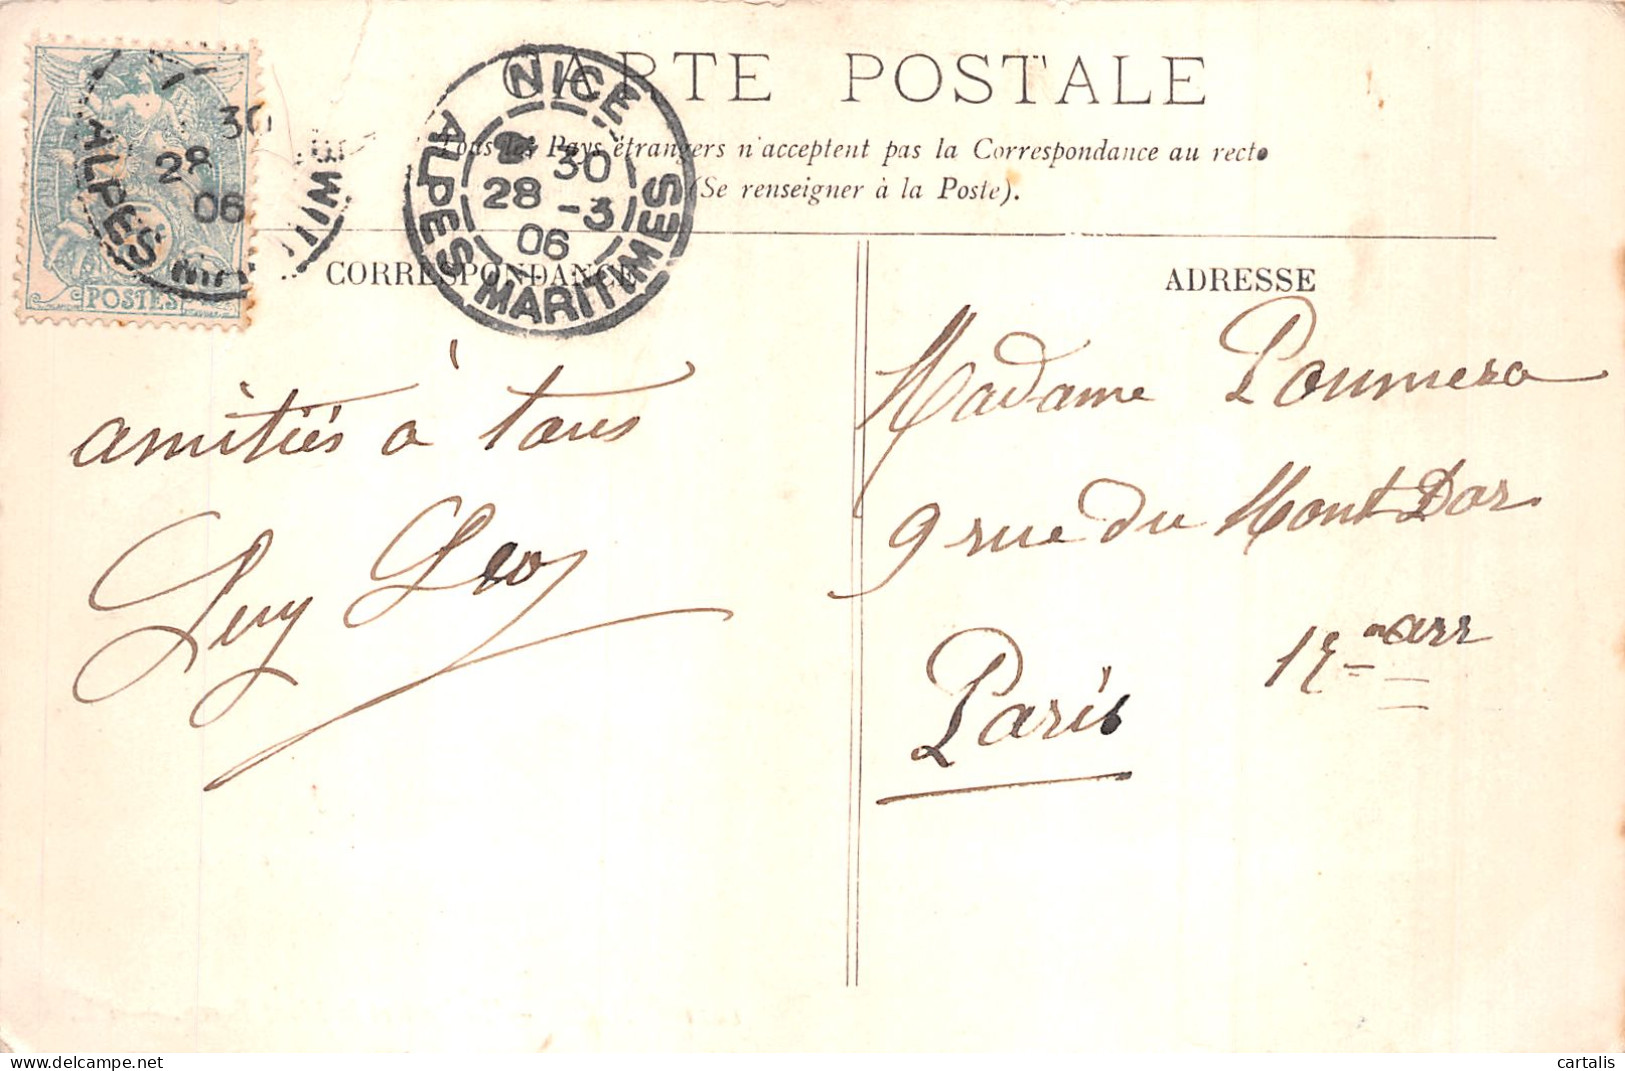 CARTE POSTALE
Tous les Pays étrangers n'acceptent pas la Correspondance au recto
(Se renseigner à la Poste).
CORRESPONDANCE
ADRESSE
POSTES
30
28
06
ALPES
NICE
30
28 -3
06
ALPES MARITIMES
amitiés à tous
Leo
Madame Poumera
9 rue du Mont Dor
Paris
arr
cartalis